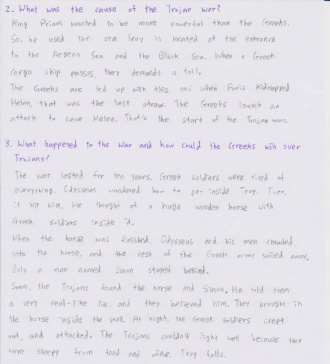 2. What was the cause of the Trojan war?
King Priam wanted to be more powerful than the Greeks.
So, he used the sea Troy is located at the entrance
to the Aegean Sea and the Black Sea. When a Greek
cargo ship passes, they demands a toll.
The Greeks are fed up with this, so when Paris kidnapped
Helen, that was the last straw. The Greeks launch an
attack to save Helen. That's the start of the Trojan war.
3. What happened to the war and how could the Greeks win over
Trojans?
The war lasted for ten years. Greek soldiers were tired of
everything. Odysseus wondered how to get inside Troy. Then,
it hit him. He thought of a huge wooden horse with
Greek soldiers inside it.
When the horse was finished, Odysseus and his men crawled
into the horse, and the rest of the Greek army sailed away.
Only a man named Sinon stayed behind.
Soon, the Trojans found the horse and Sinon. He told them
a very real-like lie, and they believed him. They brought in
the horse inside the wall. At night, the Greek soldiers crept
out, and attacked. The Trojans couldn't fight well because they
were sleepy from food and wine. Troy falls.